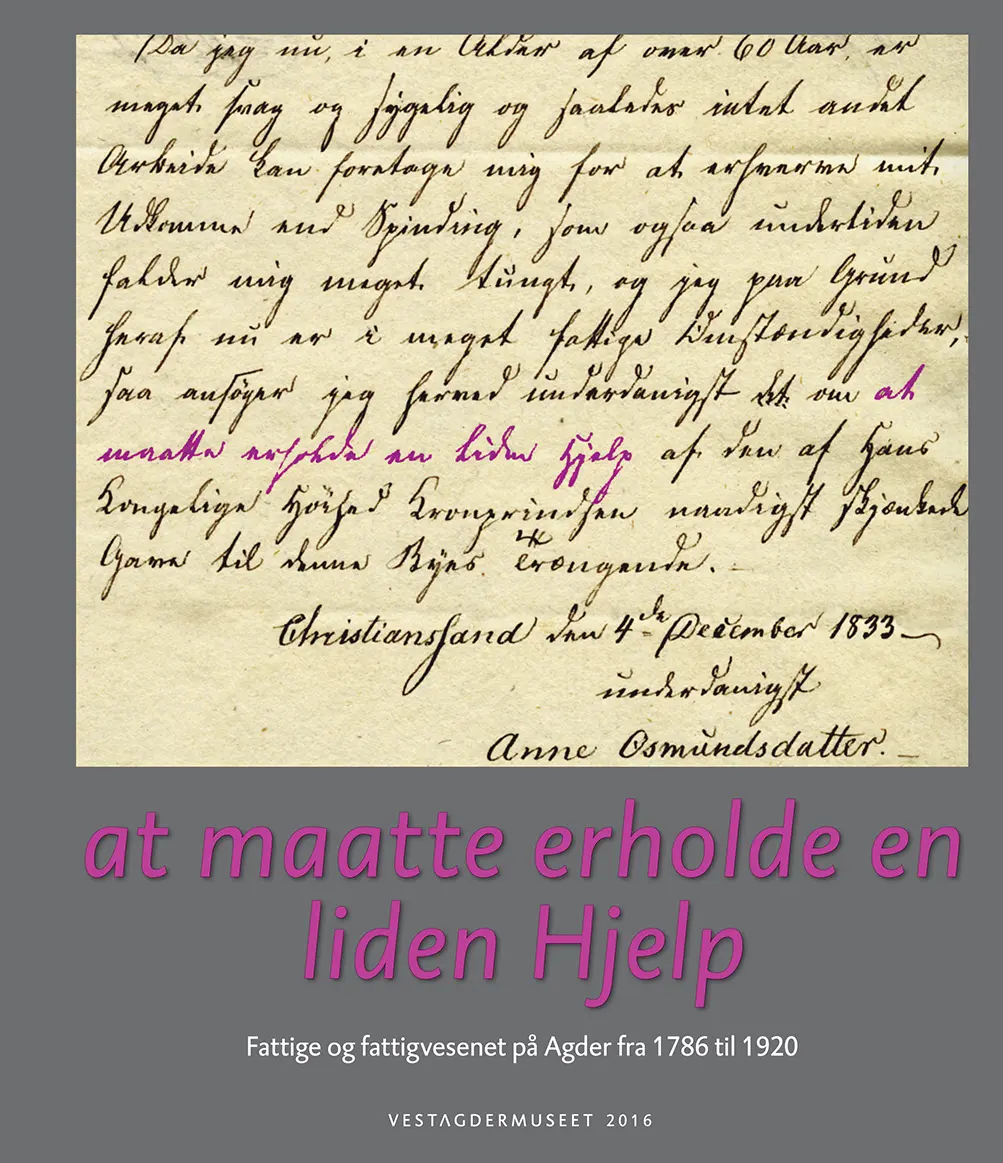 Da jeg nu, i en Alder af over 60 Aar, er
meget svag og sygelig og saaledes intet andet
Arbeide kan foretage mig for at erhverve mit
Udkomme end Spinding, som ogsaa undertiden
falder mig meget tungt, og jeg paa Grund
heraf nu er i meget fattige Omstændigheder,
saa ansöger jeg herved underdanigst det om at
maatte erholde en liden Hjelp af den af Hans
Kongelige Höihed Kronprindsen naadigst skjænkede
Gave til denne Byes Trængende.
Christianssand den 4de December 1833
underdanigst
Anne Osmundsdatter.
at maatte erholde en
liden Hjelp
Fattige og fattigvesenet på Agder fra 1786 til 1920
VESTAGDERMUSEET 2016